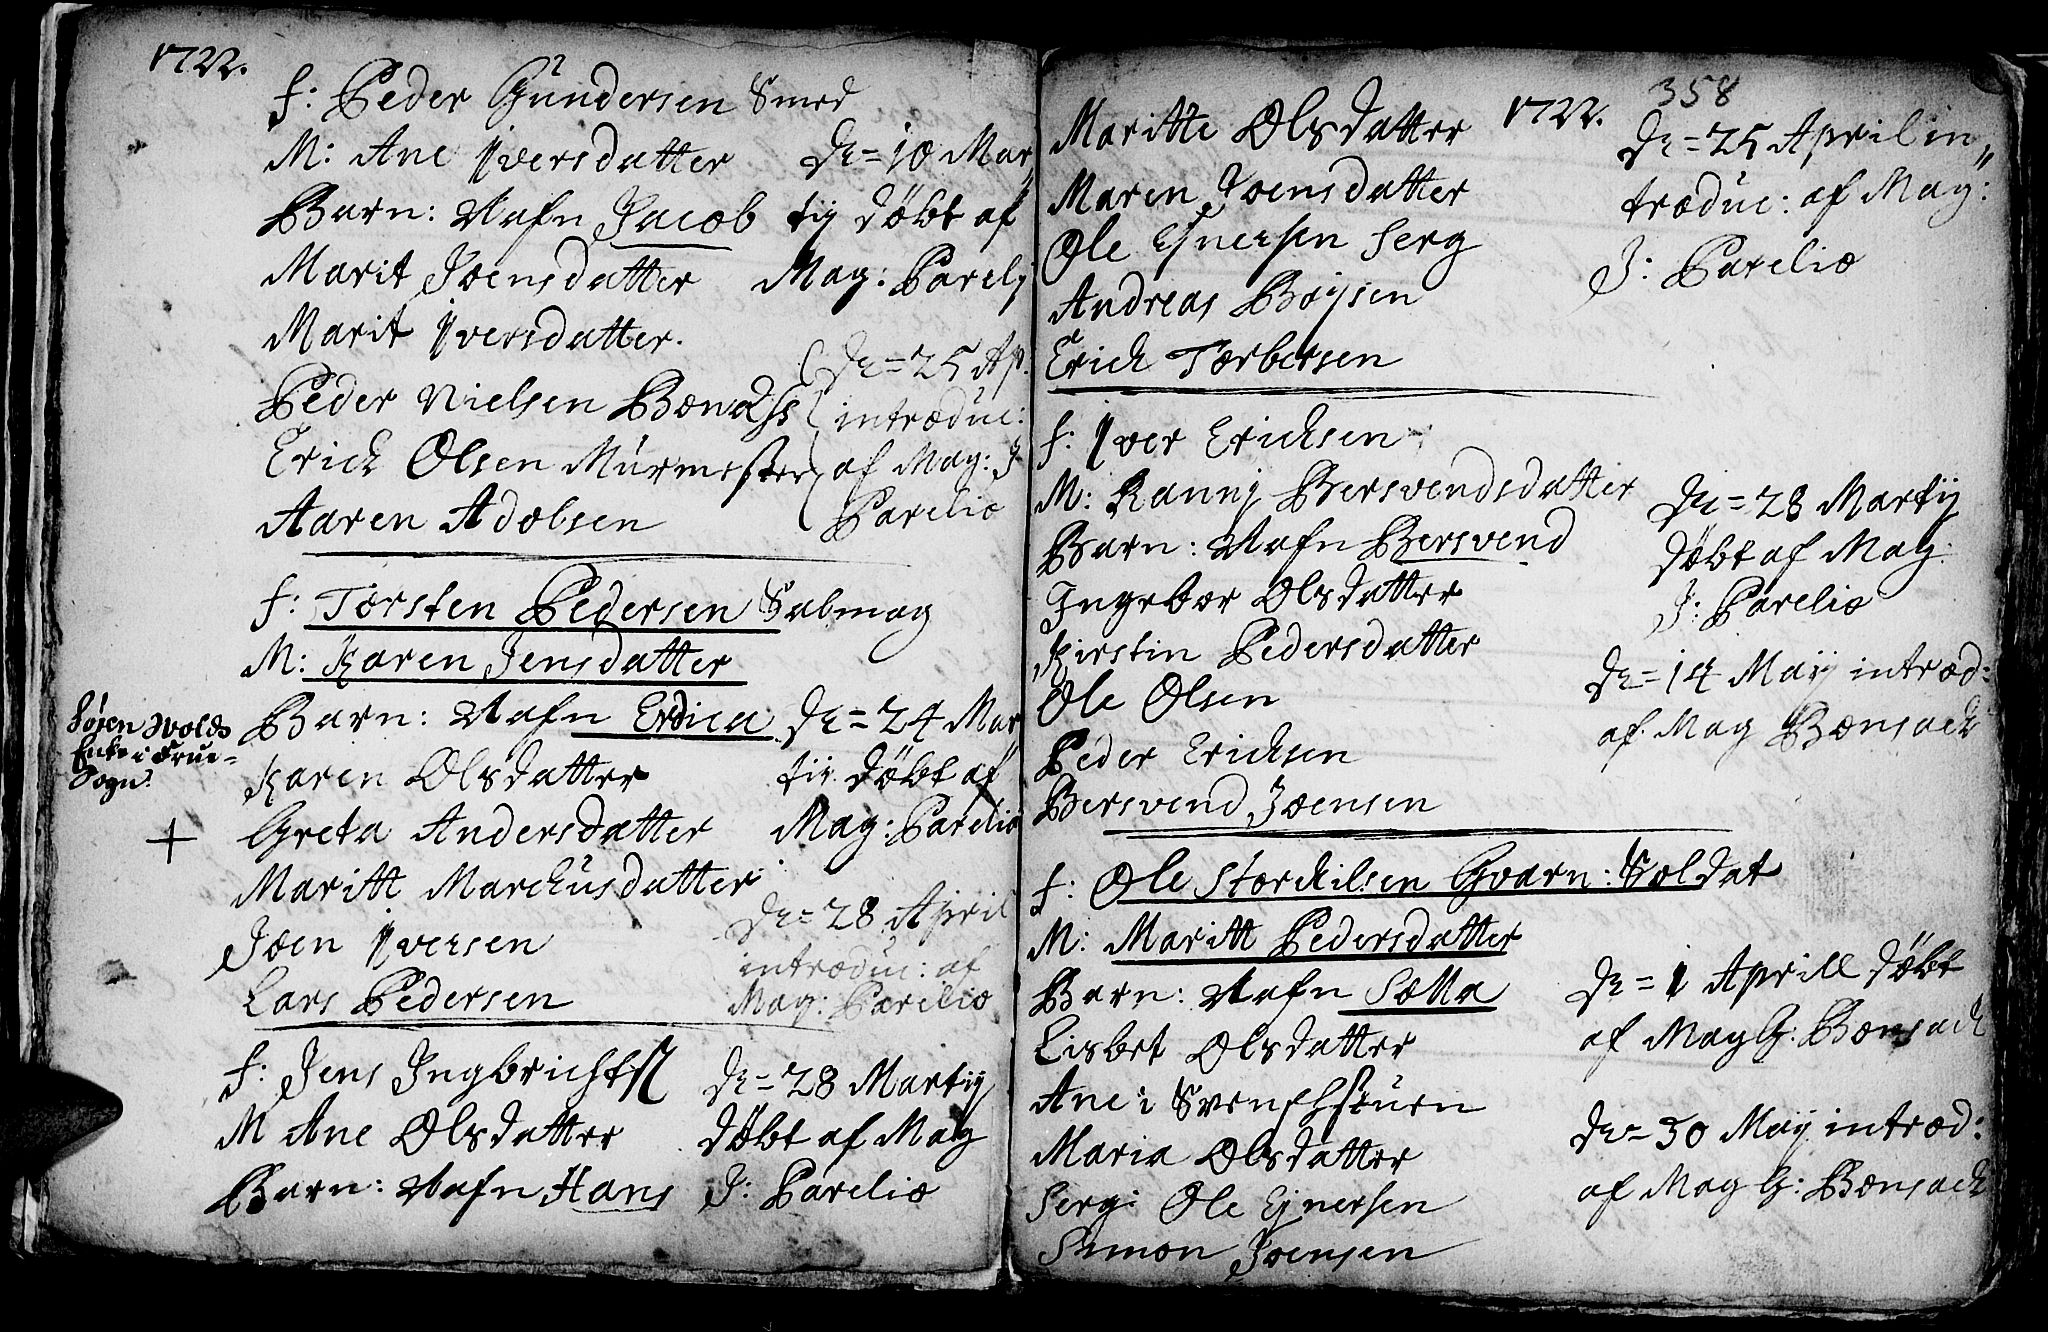 1722.
f: Peder Gundersen Smed
M: Ane Iversdatter
Barn: Nafn Jacob
Marit Joensdatter
Marit Iversdatter.
Peder Nielsen
Erich Olsen Murmester
Aaren Adolsen
De = 10 Mar„
tij døbt af
Mag: Parelj
De = 25 Ap.
introduc:
af Mag: J
Parelio
f: Torsten Pedersen Salmag
M: Karen Jensdatter
Barn: Nafn Erdica
Karen Olsdatter
Greta Andersdatter
Maritt Marchusdatter
Joen Iversen
Lars Pedersen
Søren Wolds
Enke i Frue-
Sogn.
+
De = 24 Mar
tii døbt af
Mag: Parelio
De = 28 April
introduc: af
Mag: Parelio
f: Jens Ingbrichts
M Ane Olsdatter
Barn: Nafn Hans
De = 28 Martij
døbt af Mag
J: Parelio
358
1722.
Maritte Olsdatter
Maren Joensdatter
Ole Ejnersen Serg
Andreas Bøysen
Erich Torbersen
De = 25 April in„
troduc: af Mag:
J: Parelio
f: Iver Erichsen
M: Ranni Bersvendsdatter
Barn: Nafn Bersvend
Ingebor Olsdatter
Kirstin Pedersdatter
Ole Olsen
Peder Erichsen
Bersvend Joensen
De = 28 Martij
døbt af Mag:
J: Parelio
De = 14 Maij introd:
af Mag Bonsach
f: Ole Storchilsen Gvarn: Soldat
M: Maritt Pedersdatter
Barn: Nafn
Lisbet Olsdatter
Ane i
Maria Olsdatter
Serg: Ole Ejnersen
Simon Joensen
De = 1 Aprill døbt
af Mag G: Bonsach
De = 30 Maij introd:
af Mag G: Bonsach